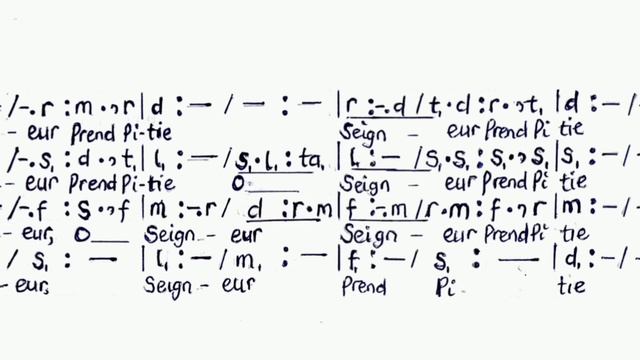 /-.r :m.,r|d :— / — : — |r :-.d /t,.d:r.,t, |d:—/-
- eur Prend Pi-tie Seign - eur Prend Pi tie
/-.s, :d.,t,|l, :—/s,.l,:ta, |l, :—/s,.s,:s,.,s,|s,:—/-
- eur Prend Pi-tie O___ Seign - eur Prend Pi tie
/-.f :s.,f|m :-.r/ d :r.m|f :-.m/r.m:f.,r|m:—/-
- eur, O___ Seign - eur Seign - eur Prend Pi tie
/ s, : — |l, :—/m, : — |f, :—/ s, : — |d, :—/-
- eur, Seign - eur Prend Pi - tie